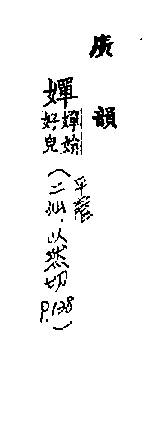 廣韻
嬋
嬋娟
好皃
(二仙·以然切
P.138)
平聲